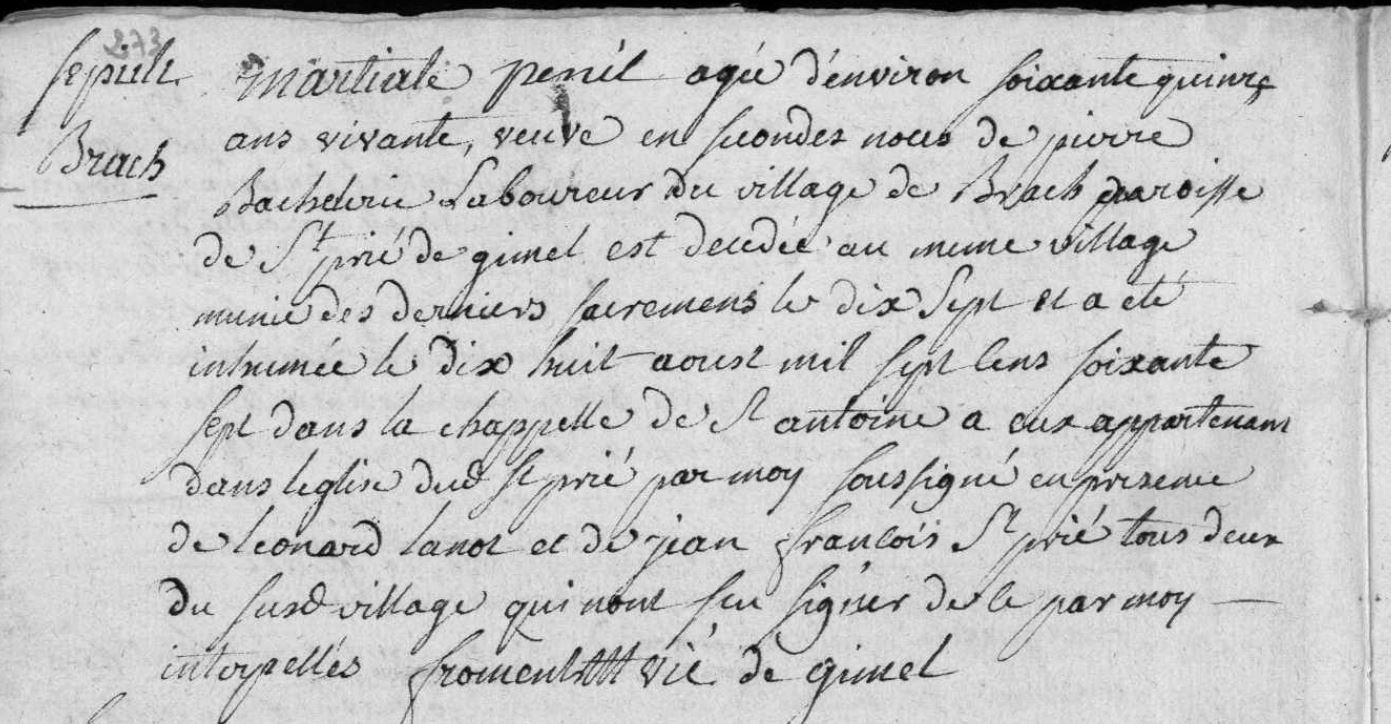 273
sepult.
Brach
martiale penil agée d'environ soixante quinze
ans vivante, veuve en secondes noces de pierre
Bachelerie Laboureur du village de Brach paroisse
de St prié de gimel est decedée au meme village
munie des derniers sacremens le dix Sept et a eté
inhumée le dix huit aoust mil sept cens soixante
sept dans la chappelle de St antoine a eux appartenant
dans leglise dud St prié par moy soussigné en presence
de leonard lanot et de jean francois St prié tous deux
du susd village qui nont seu signer de ce par moy
interpellés froment vic. de gimel